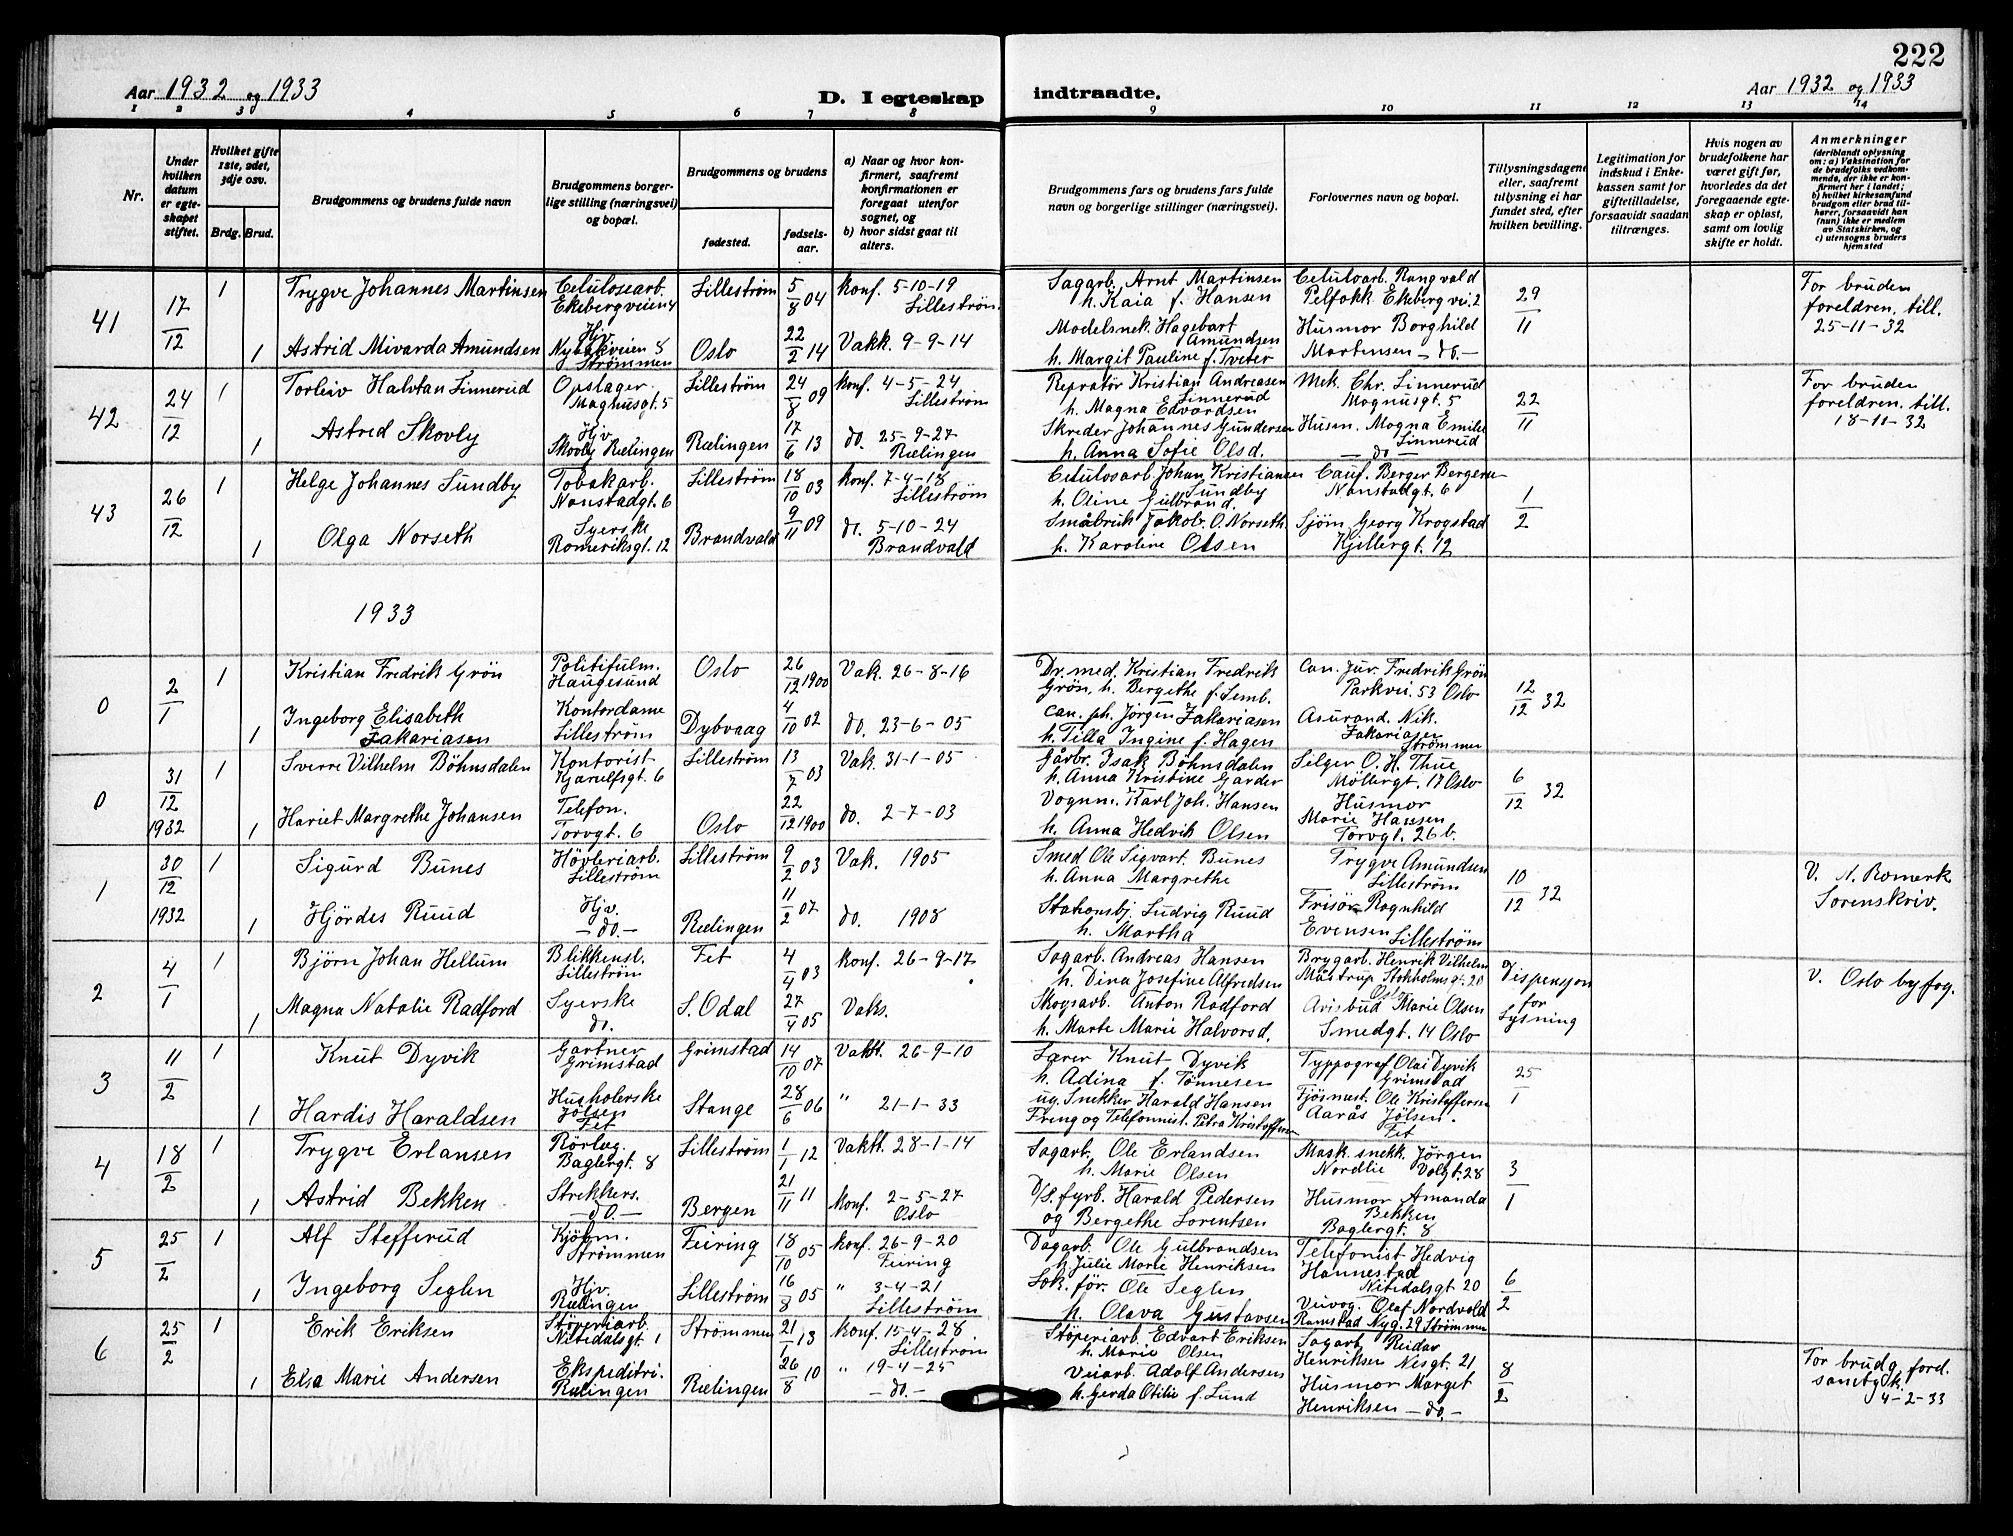 222
Aar 1932 og 1933
D. I egteskap
indtraadte.
Aar 1932 og 1933
1 2 3 4 5 6 7 8 9 10 11 12 13 14
Nr.
Under hvilken datum er egteskapet stiftet.
Hvilket gifte 1ste, 2det, 3dje osv.
Brdg. Brud.
Brudgommens og brudens fulde navn
Brudgommens borgerlige stilling (næringsvei) og bopæl.
Brudgommens og brudens
fødested.
fødselsaar.
a) Naar og hvor konfirmert, saafremt konfirmationen er foregaat utenfor sognet, og
b) hvor sidst gaat til alters.
Brudgommens fars og brudens fars fulde navn og borgerlige stillinger (næringsvei).
Forlovernes navn og bopæl.
Tillysningsdagene eller, saafremt tillysning ei har fundet sted, efter hvilken bevilling.
Legitimation for indskud i Enkekassen samt for giftetilladelse, forsaavidt saadan tiltrænges.
Hvis nogen av brudefolkene har været gift før, hvorledes da det foregaaende egteskap er opløst, samt om lovlig skifte er holdt.
Anmerkninger
(deriblandt oplysning om: a) Vaksination for de brudefolks vedkommende, der ikke er konfirmert her i landet; b) hvilket kirkesamfund brudgom eller brud tilhører, forsaavidt han (hun) ikke er medlem av Statskirken, og c) utensogns bruders hjemsted
41 17/12 1 Trygve Johannes Martinsen Celulosearb. Ekebergveien 4 Lillestrøm 5/8 04 Konf. 5-10-19 Lillestrøm
Sagarb. Arnt Martinsen h. Kaia f. Hansen Celuloarb. Rangvald Pelfokk Ekebergvei 2 29/11 For bruden foreldren. till. 25-11-32
1 Astrid Mivarda Amundsen Hjv. Nybakveien 8 Strømmen Oslo 22/2 14 Vakk. 9-9-14
Modelsnek. Hagebart Amundsen h. Margit Pauline f. Tveter Husmor Borghild Martinsen - do. -
42 24/12 1 Torleiv Halvtan Linnerud Opslager Maghusgt. 5 Lillestrøm 24/8 09 Konf. 4-5-24 Lillestrøm
Repratør Kristian Andreasen Linnerud h. Magna Edvardsen Mek. Chr. Linnerud Magnusgt. 5 22/11 For bruden foreldren. till. 18-11-32
1 Astrid Skovly Hjv. Skovly Rælingen Rælingen 17/6 13 do. 25-9-27 Rælingen
Skreder Johannes Gundersen h. Anna Sofie Olsd. Husm. Magna Emilie Linnerud - do -
43 26/12 1 Helge Johannes Sundby Tobakarb. Nanstadgt. 6 Lillestrøm 18/10 03 Konf. 7-4-18 Lillestrøm
Celulosarb. Johan Kristiansen Sundby h. Oline Gulbrand. Berger Bergersen Nanstadgt. 6 1/2
1 Olga Norseth Syerske Romeriksgt. 12 Brandvald 9/11 09 do. 5-10-24 Brandvald
Småbruk Jakob O. Norseth h. Karoline Olsen Sjöm. Georg Krogstad Kjillergt. 12
1933
0 2/1 1 Kristian Fredrik Grön Politifulm. Haugesund Oslo 26/12 1900 Vak. 26-8-16
Dr. med. Kristian Fredrik Grön, h. Bergethe f. Lemb. Can. jur. Fredrik Grön Parkvei. 53 Oslo 12/12 32
1 Ingeborg Elisabeth Zakariasen Kontordame Lillestrøm Dybvaag 4/10 02 do. 23-6-05
Can. ph. Jörgen Zakariasen h. Tilla Ingine f. Hagen Asurand. Nik. Zakariasen Strømmen
0 31/12 1932 1 Sverre Vilhelm Böhnsdalen Kontorist Kjærulfsgt. 6 Lillestrøm 13/7 03 Vak. 31-1-05
Gårbr. Isak Böhnsdalen h. Anna Kristine Garder Selger O. H. Thue Möllergt. 17 Oslo 6/12 32
1 Hariet Margrethe Johansen Telefon. Torvgt. 6 Oslo 22/12 1900 do. 2-7-03
Vognm. Karl Joh. Hansen h. Anna Hedvik Olsen Husmor Marie Hansen Torvgt. 26 b.
1 30/12 1932 1 Sigurd Bunes Høvleriarb. Lillestrøm Lillestrøm 9/2 03 Vak. 1905
Smed Ole Sigvart Bunes h. Anna Margrethe Trygve Amundsen Lillestrøm 10/12 32 V. N. Romerk Sorenskriv.
1 Hjördes Ruud Hjv. - do. - Rælingen 11/2 07 do. 1908
Stahonsbj. Ludvig Ruud h. Martha Frisör Ragnhild Evensen Lillestrøm
2 4/1 1 Bjørn Johan Hellum Blikkensl. Lillestrøm Fet 4/4 03 Konf. 26-9-17
Sagarb. Andreas Hansen h. Dina Josefine Alfredsen Brygarb. Henrik Vilhelm Måstrup Stokholmsgt. 20 Oslo Dispensjon for Lysning V. Oslo byfog.
1 Magna Natalie Radford Syerske do. S. Odal 27/4 05 Vaks.
Skogsarb. Anton Radford h. Marte Marie Halvorsd. Avisbud Marie Olsen Smedgt. 14 Oslo
3 11/2 1 Knut Dyvik Gartner Grimstad Grimstad 14/10 07 Vakt. 26-9-10
Lærer Knut Dyvik h. Adina f. Tönnesen Typpograf Olai Dyvik Grimstad 25/1
1 Hardis Haraldsen Husholerske Jölsen Fet Stange 28/6 06 " 21-1-33
ug. Snekker Harald Hansen Fring og Telefonnist. Petra Kristoffersen Fjösmest. Ole Kristoffersen Aarås Jölsen. Fet
4 18/2 1 Trygve Erlansen Rörleg. Baglergt. 8 Lillestrøm 1/1 12 Vaktt. 28-1-14
Sagarb. Ole Erlandsen h. Marie Olsen Mask. snekk. Jörgen Nordlie Volgt. 28 3/1
1 Astrid Bekken Strekkers. - do. - Bergen 21/11 11 Konf. 2-5-27 Oslo
D/s. fyrb. Harald Pedersen og Bergethe Lorentsen Husmor Amanda Bekken Baglergt. 8
5 25/2 1 Alf Stefferud Kjöbm. Strømmen Feiring 18/10 05 Konf. 26-9-20 Feiring
Dagarb. Ole Gulbrandsen h. Julie Marie Henriksen Telefonist Hedvig Hannestad Nitedalsgt 20 6/2
1 Ingeborg Seglen Hjv. Rælingen Lillestrøm 16/8 05 " 3-4-21 Lillestrøm
Lok. før. Ole Seglen h. Olava Gustavsen Olaf Nordvold Ramstad Nyg. 29 Strømmen
6 25/2 1 Erik Eriksen Støperiarb. Nitedalsgt 1 Strømmen 21/1 13 Konf. 15-4-28. Lillestrøm
Stöperiarb. Edvart Eriksen h. Marie Olsen Sagarb. Reidar Henriksen Nisgt. 21 8/2 For brudg. ford. samtyk. 4-2-33
1 Elsa Marie Andersen Ekspeditri. Rælingen Rælingen 26/8 10 " 19-4-25 - do. -
Veiarb. Adolf Andersen h. Gerda Otilie f. Lund Husmor Marget Henriksen - do. -